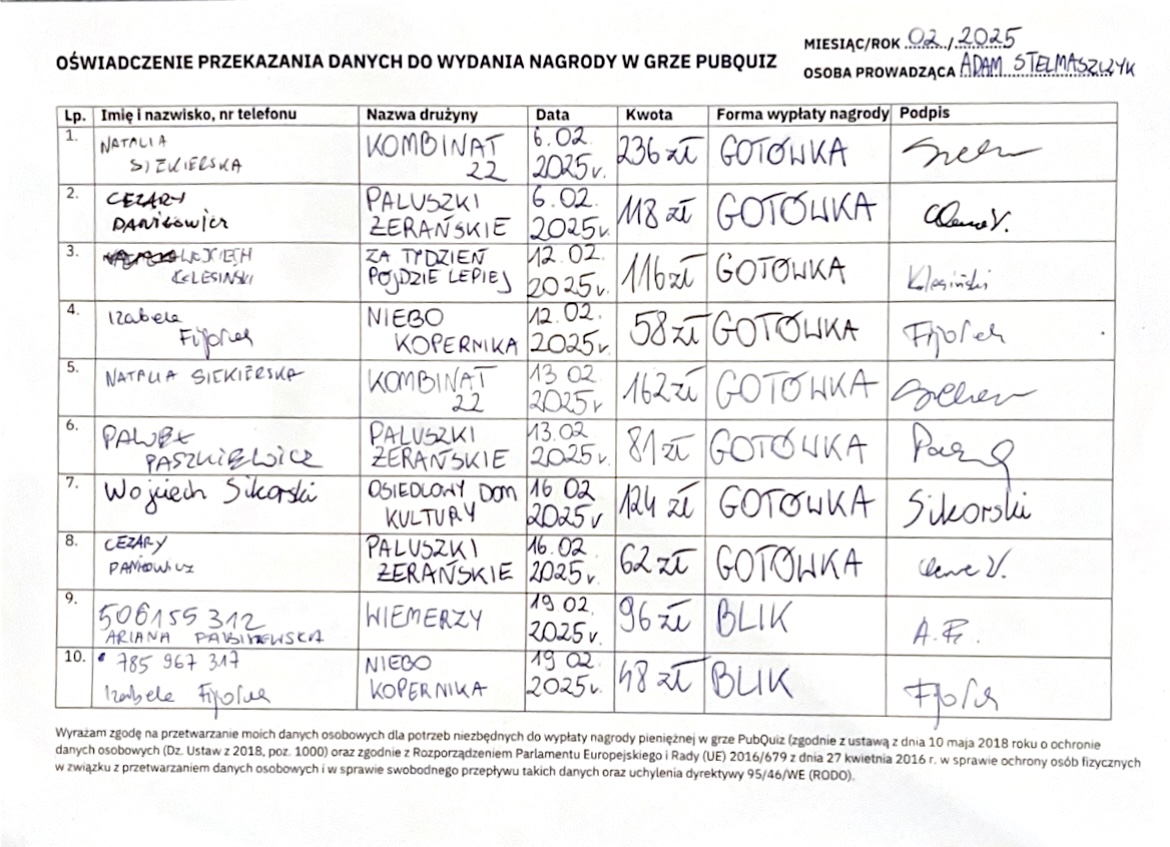 MIESIĄC/ROK 02./.2025
OŚWIADCZENIE PRZEKAZANIA DANYCH DO WYDANIA NAGRODY W GRZE PUBQUIZ
OSOBA PROWADZĄCA ADAM STELMASZCZYK
Lp. Imię i nazwisko, nr telefonu Nazwa drużyny Data Kwota Forma wypłaty nagrody Podpis
1. NATALIA KOMBINAT 6.02. 236 zł GOTÓWKA
SIEKIERSKA 22 2025r.
2. CEZARY PALUSZKI 6.02. 118 zł GOTÓWKA
ŻERAŃSKIE 2025r.
3. ZA TYDZIEŃ 12.02. 116 zł GOTÓWKA Kolesiński
KOLESIŃSKI PÓJDZIE LEPIEJ 2025r.
4. Izabela NIEBO 12.02. 58 zł GOTÓWKA
KOPERNIKA 2025r.
5. NATALIA SIEKIERSKA KOMBINAT 13 02. 162 zł GOTÓWKA
22 2025r
6. PAWEŁ PALUSZKI 13.02. 81 zł GOTÓWKA
PASZKIEWICZ ŻERAŃSKIE 2025r.
7. Wojciech Sikorski OSIEDLOWY DOM 16 02 124 zł GOTÓWKA Sikorski
KULTURY 2025r
8. CEZARY PALUSZKI 16.02. 62 zł GOTÓWKA
ŻERAŃSKIE 2025r.
9. 506155 312 WIEMERZY 19 02. 96 zł BLIK
ARIANA 2025r.
10. 785 967 317 NIEBO 19 02. 48 zł BLIK
Izabela KOPERNIKA 2025r.
Wyrażam zgodę na przetwarzanie moich danych osobowych dla potrzeb niezbędnych do wypłaty nagrody pieniężnej w grze PubQuiz (zgodnie z ustawą z dnia 10 maja 2018 roku o ochronie
danych osobowych (Dz. Ustaw z 2018, poz. 1000) oraz zgodnie z Rozporządzeniem Parlamentu Europejskiego i Rady (UE) 2016/679 z dnia 27 kwietnia 2016 r. w sprawie ochrony osób fizycznych
w związku z przetwarzaniem danych osobowych i w sprawie swobodnego przepływu takich danych oraz uchylenia dyrektywy 95/46/WE (RODO).